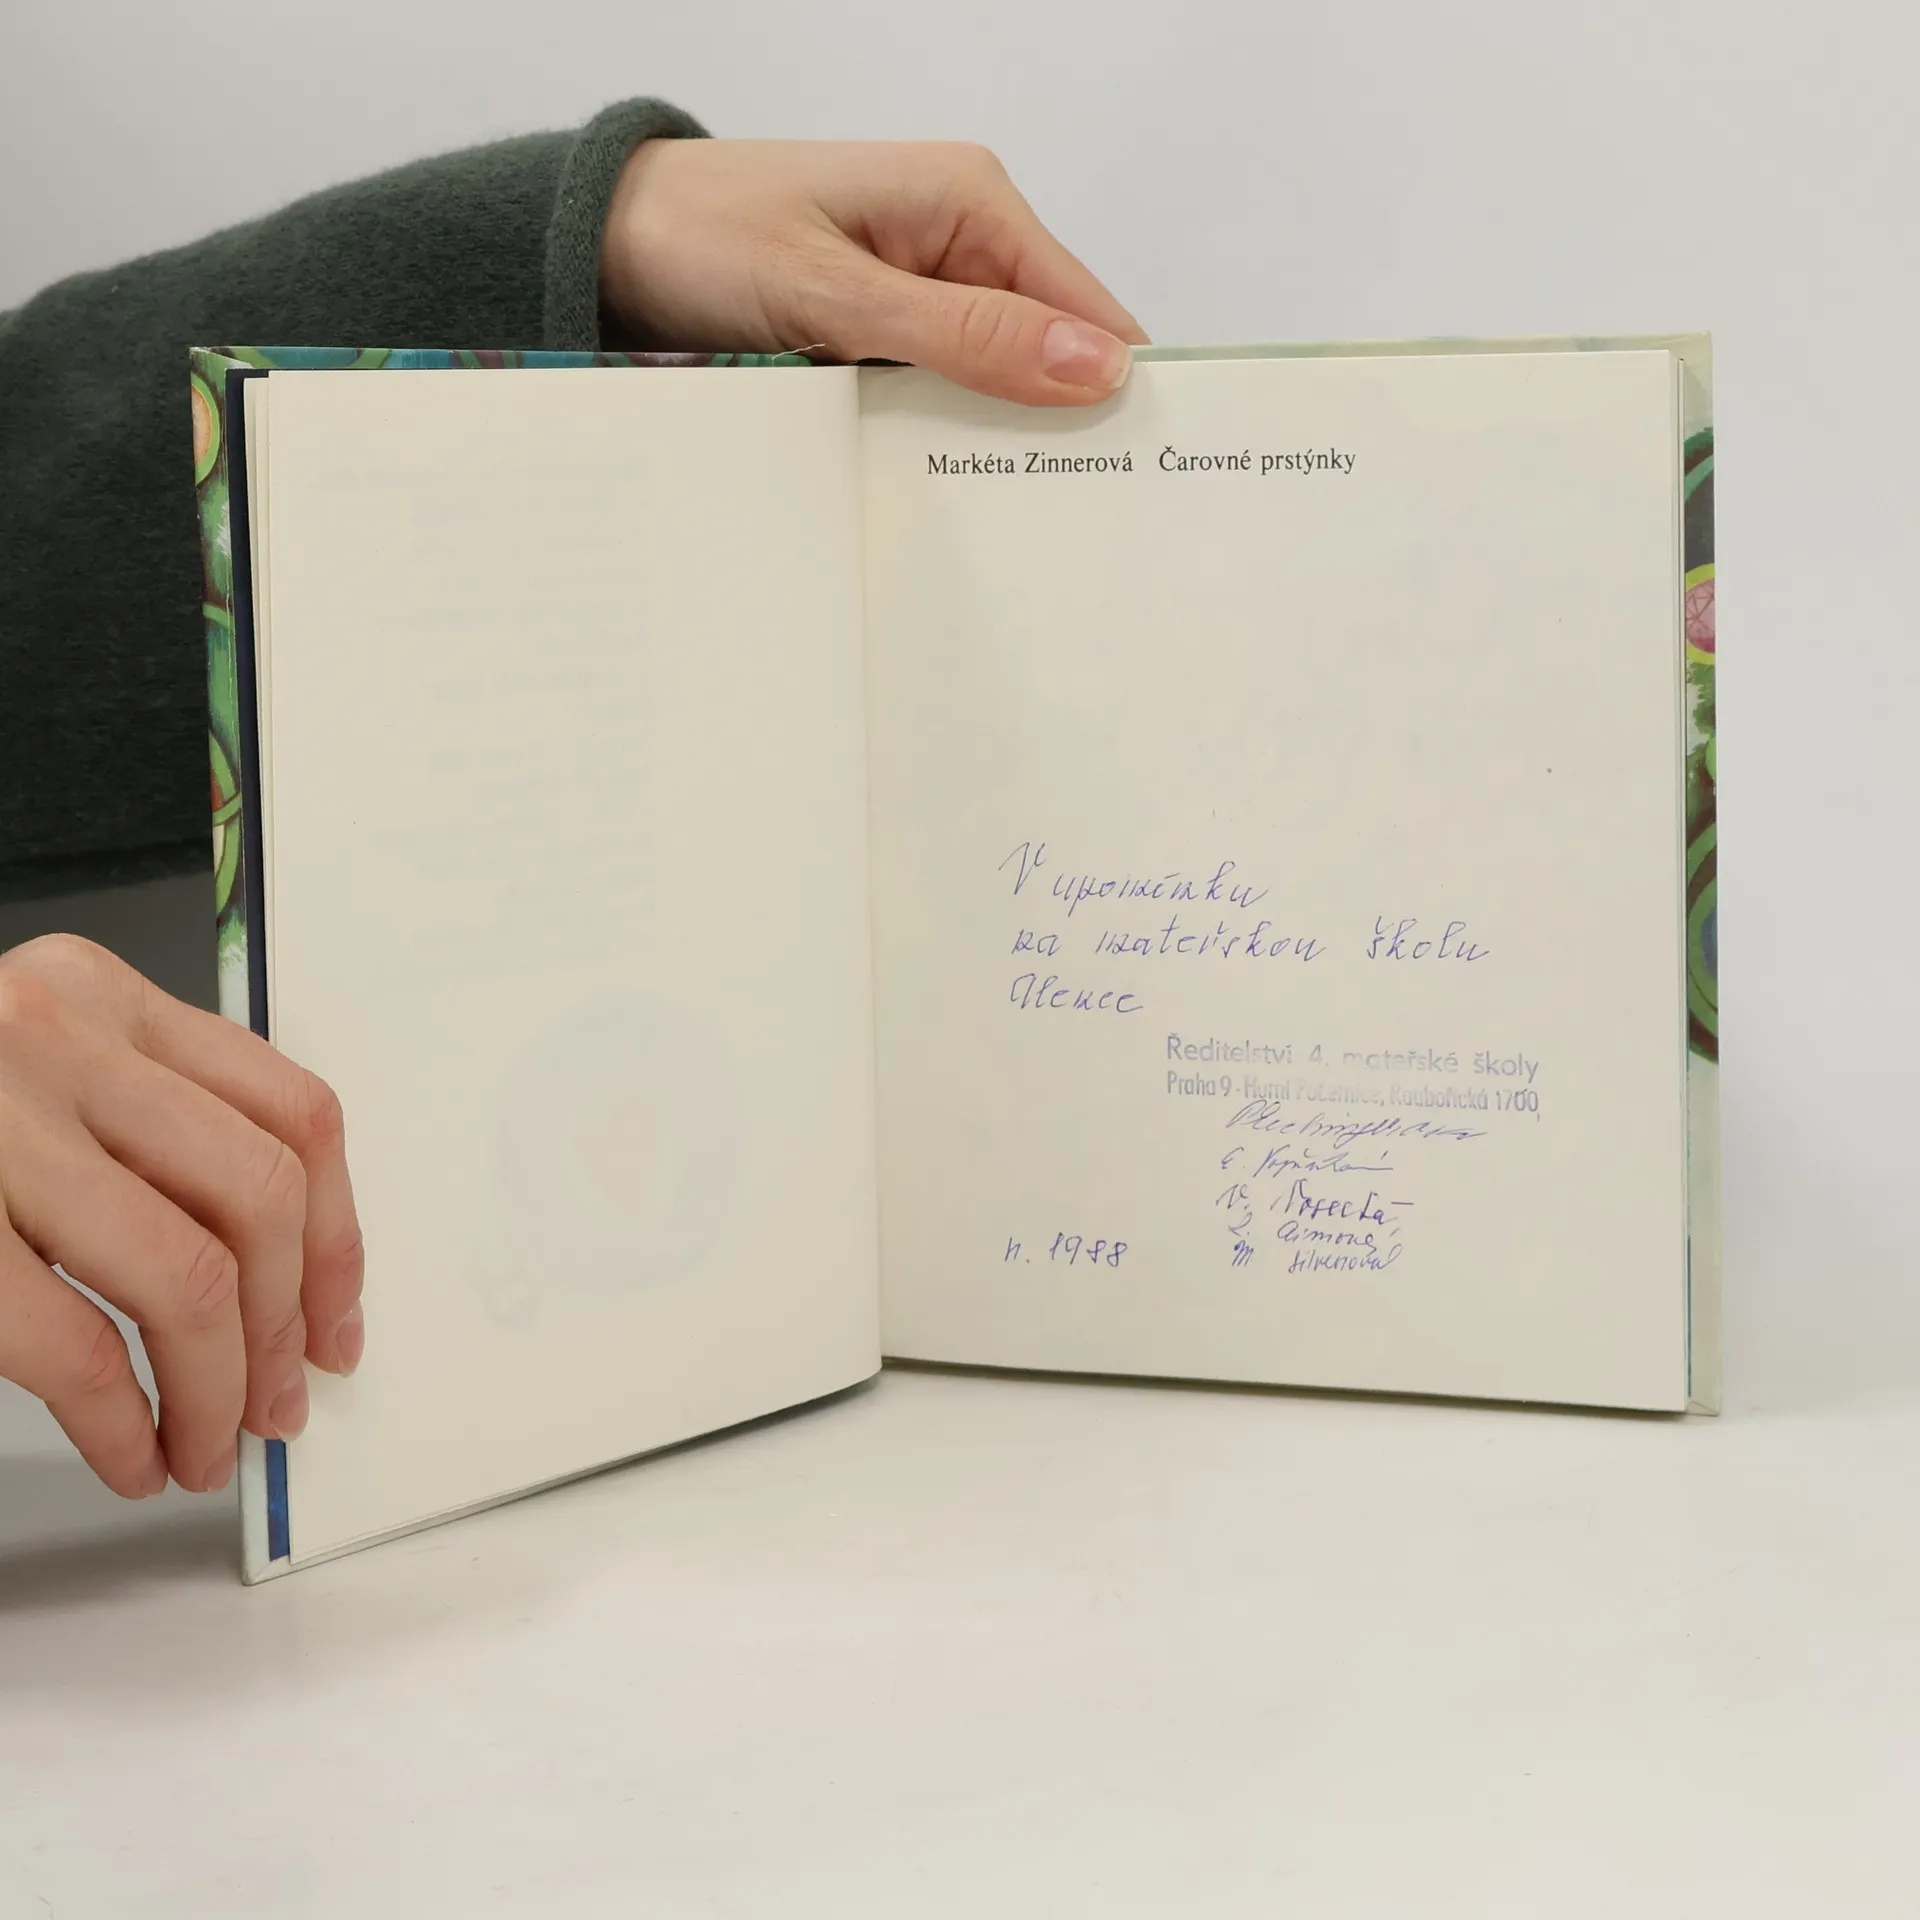 Markéta Zinnerová Čarovné prstýnky
V upomínku
na mateřskou školu
Alence
Ředitelství 4. mateřské školy
Praha 9 - Horní Počernice, Ratbořická 1700,
E.
V.
M Silvenová
r. 1988